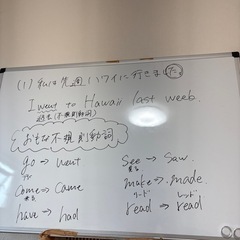 (1) 私は先週ハワイに行きました。
I went to Hawaii last week.
過去(不規則動詞)
おもな不規則動詞
go → went
see → saw
見る
come → came
来る
make → made
リード レッド
read → read
have → had